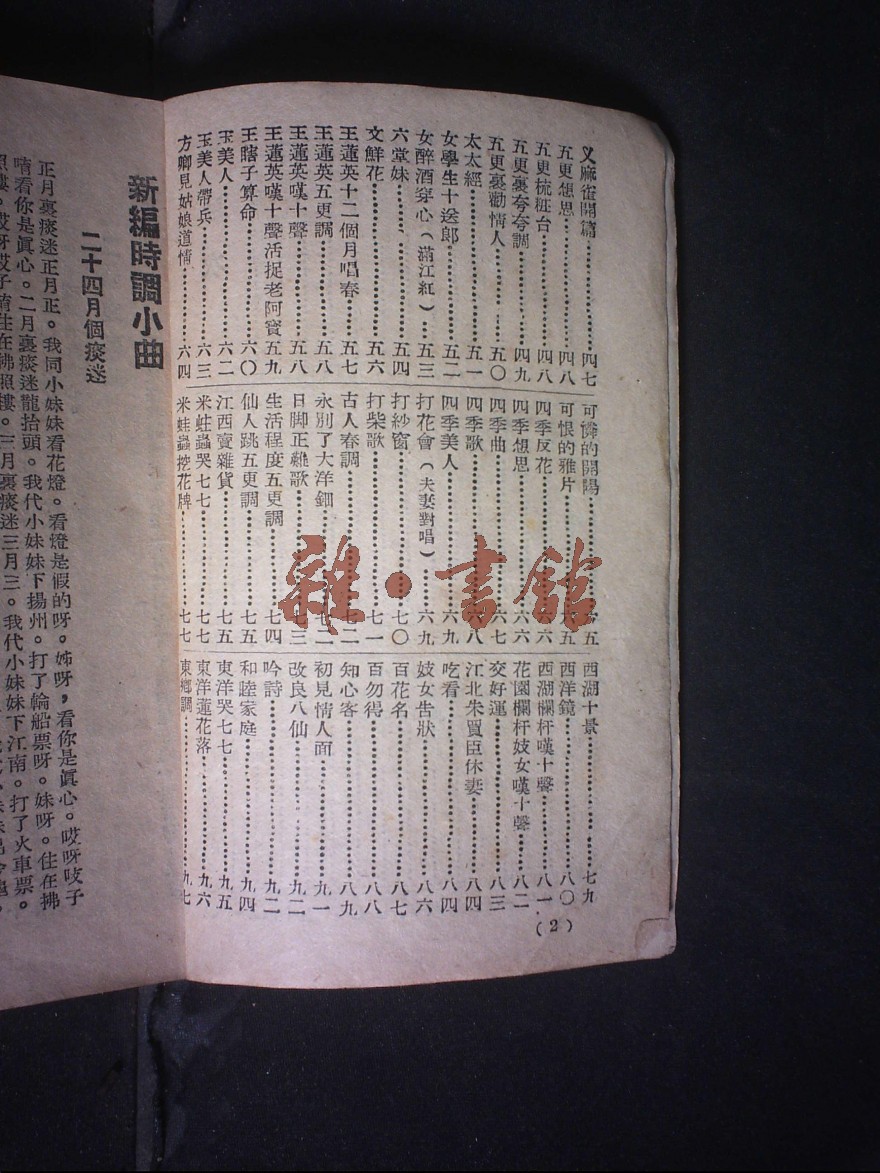 又麻雀開篇……四七
五更想思……四八
五更梳粧台……四八
五更裏夸夸調……四九
五更裏勸情人……五〇
太太經……五一
女學生十送郎……五二
女醉酒穿心(滿江紅)……五三
六堂妹……五四
文鮮花……五六
王蓮英十二個月唱春……五七
王蓮英五更調……五八
王蓮英嘆十聲……五八
王蓮英嘆十聲活捉老阿寶……五九
王瞎子算命……六〇
玉美人……六二
玉美人帶兵……六三
方卿見姑娘道情……六四
可憐的開陽……六五
可恨的雅片……六五
四季反花……六六
四季想思……六六
四季曲……六七
四季歌……六八
四季美人……六九
打花會(夫妻對唱)……六九
打紗窗……七〇
打柴歌……七一
古人春調……七二
永別了大洋鈿……七二
日脚正難歌……七三
生活程度五更調……七四
仙人跳五更調……七五
江西賣雜貨……七五
米蛀蟲哭七七……七七
米蛀蟲挖花牌……七七
西湖十景……七九
西洋鏡……八〇
西湖欄杆嘆十聲……八一
花園欄杆妓女嘆十聲……八二
交好運……八三
江北朱買臣休妻……八四
吃看……八四
妓女告狀……八六
百花名……八七
百勿得……八八
知心客……八九
初見情人面……九一
改良八仙……九二
吟詩……九二
和睦家庭……九四
東洋哭七七……九五
東洋蓮花落……九六
東鄉調……九七
(2)
雜·書館
新編時調小曲
二十四月個痰迷
正月裏痰迷正月正。我同小妹妹看花燈。看燈是假的呀。姊呀,看你是眞心。哎呀吱子
唷看你是眞心。二月裏痰迷龍抬頭。我代小妹妹下揚州。打了輪船票呀。妹呀。住在拂
照樓。哎呀哎子唷住在拂照樓。三月裏痰迷三月三。我代小妹妹下江南。打了火車票。